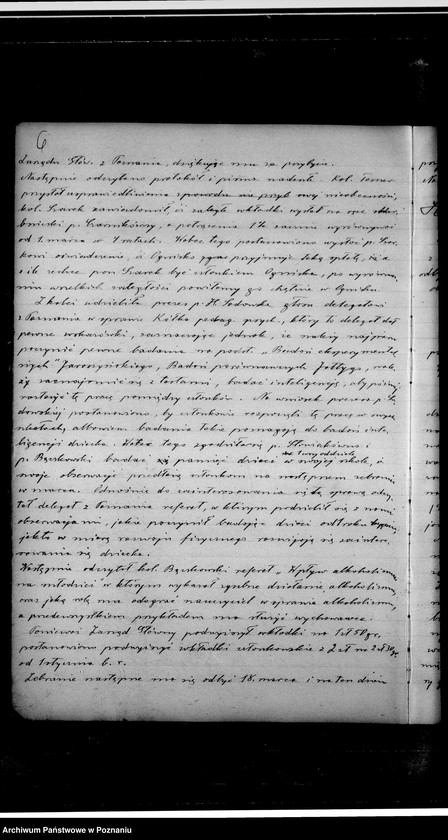 6
Zarządu Głów. z Poznania, dziękując mu za przybycie.
Następnie odczytano protokół i pisma nadesłane. Kol.
przysłał usprawiedliwienie z powodu nieobecności,
kol. Szarek zawiadomił, iż zaległe wkładki wysłał na ręce
p. a potrącenie 1% zacznie
od 1. marca w ratach. Wobec tego postanowiono wysłać p. Szar-
kowi oświadczenie, iż Ognisko przyjmuje taką spłatę, i o
ile zechce pan Szarek być członkiem Ogniska, po wyrówna-
niu wszelkich zaległości powitamy go chętnie w Ognisku.
Z kolei udzieliła prezes p. H. Sadowska głosu delegatowi
z Poznania w sprawie Kółka pedag. psych., który to delegat dał
pewne wskazówki, zaznaczając jednak, że należy najpierw
poczynić pewne badania na podst. „Badań eksperymental
nych" Jaroszyńskiego, Badań porównawczych Joteyko, nale-
ży zaznajomić się z testami, badać inteligencję, aby później
rozłożyć tę pracę pomiędzy członków. Na wniosek prezes p. Sa
dowskiej postanowiono, by członkowie rozpoczęli tę pracę w swych
albowiem badania takie pomagają do badań inte-
ligencji dziecka. Wobec tego zgodzili się p. i
p. Bączkowski badać pamięć dzieci w swojej szkole, a
swoje obserwacje przedłożą członkom na następnem zebraniu
w marcu. Odnośnie do zainteresowania się tą sprawą odczy
tał delegat z Poznania referat, w którym podzielił się z nami
obserwacjami, jakie poczynił badając dzieci
jak to w miarę rozwoju fizycznego rozwijają się zaintere-
sowania się dziecka.
Następnie odczytał kol. Bączkowski referat „Wpływ alkoholizmu
na młodzież" w którym wykazał zgubne działanie alkoholizmu,
oraz jaką rolę ma odegrać nauczyciel w sprawie alkoholizmu,
a przedewszystkiem przykładem ma służyć wychowawca.
Ponieważ Zarząd Główny podwyższył wkładki na 1 zł 50 gr,
postanowiono podwyższyć wkładki członkowskie z 2 zł na 2 zł 50 gr
od 1 stycznia b. r.
Zebranie następne ma się odbyć 18. marca i na ten dzień
Archiwum Państwowe w Poznaniu